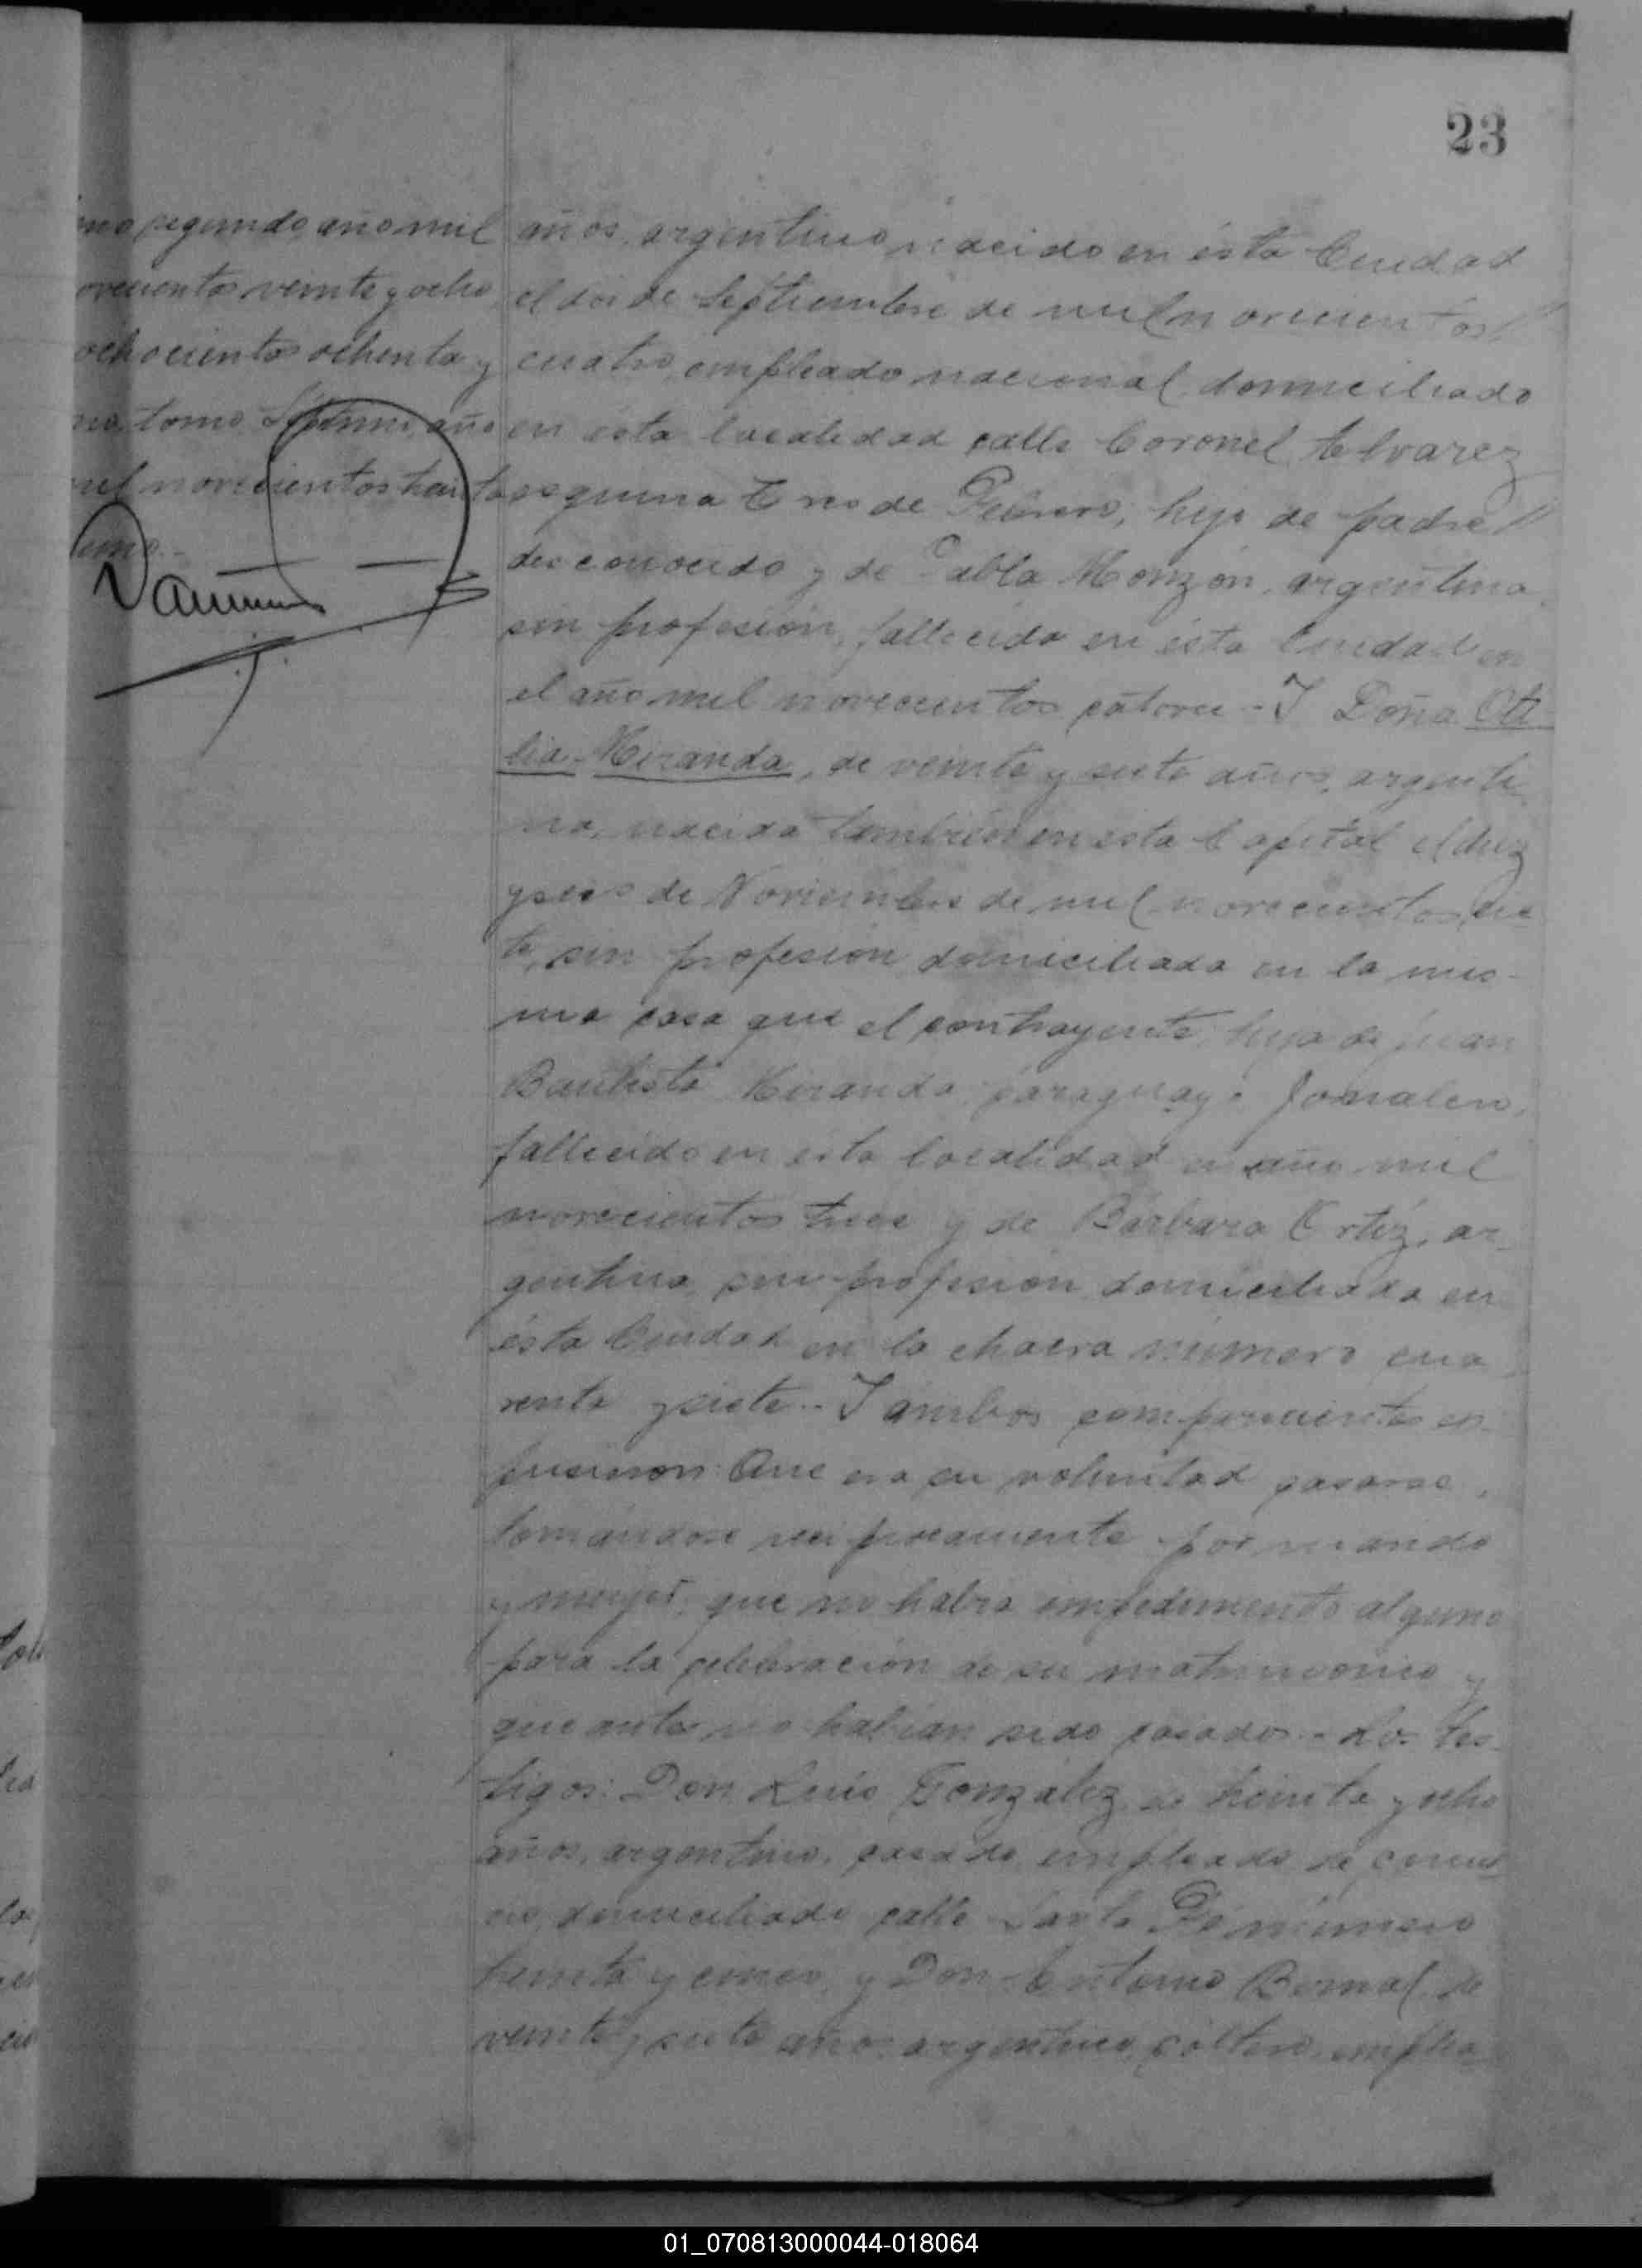 23
segundo, año mil
novecientos veinte y ocho
ochocientos ochenta y
tomo Séptimo, año
mil novecientos treinta
años, argentino, nacido en ésta Ciudad
el dos de Septiembre de mil novecientos
cuatro, empleado nacional, domiciliado
en esta localidad calle Coronel Alvarez
esquina Tres de Febrero, hijo de padre
desconocido y de Pabla Monzón, argentina,
sin profesión, fallecida en ésta Ciudad en
el año mil novecientos catorce.- Y Doña Oti-
lia Miranda, de veinte y siete años, argenti-
na, nacida también en esta Capital el diez
y seis de Noviembre de mil novecientos sie-
te, sin profesión, domiciliada en la mis-
ma casa que el contrayente, hija de Juan
Bautista Miranda, paraguayo, jornalero,
fallecido en esta localidad en año mil
novecientos trece y de Bárbara Ortíz, ar-
gentina, sin profesión, domiciliada en
ésta Ciudad en la chacra número cua-
renta y siete.- Y ambos comparecientes ex-
pusieron: Que era su voluntad casarse,
tomándose recíprocamente por marido
y mujer, que no había impedimento alguno
para la celebración de su matrimonio y
que antes no habían sido casados.- Los tes-
tigos: Don Luis González, de treinta y ocho
años, argentino, casado, empleado de comer-
cio, domiciliado calle Santa Fé número
treinta y cinco, y Don Antonio Bernal, de
veinte y siete años, argentino, soltero, emplea-
01_070813000044-018064